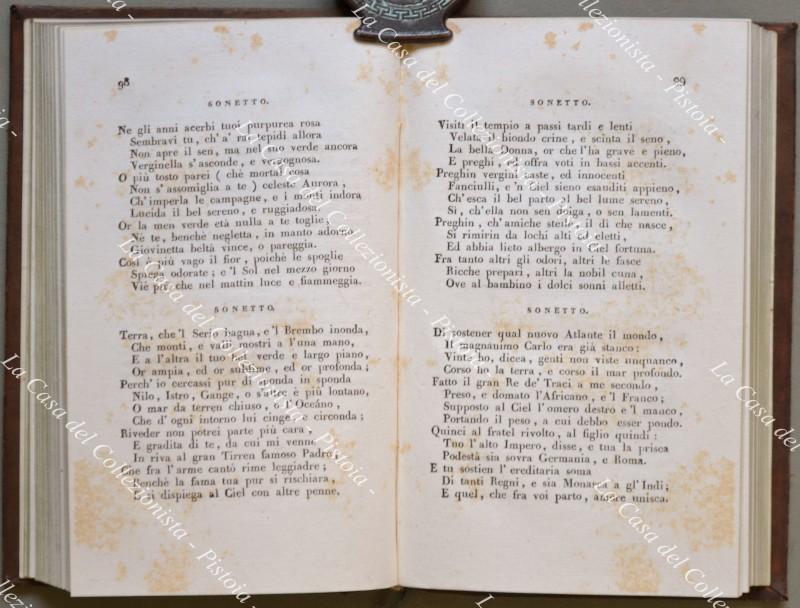 98
SONETTO.
Ne gli anni acerbi tuoi purpurea rosa
Sembravi tu, ch'a' rai tepidi allora
Non apre il sen, ma nel suo verde ancora
Verginella s'asconde, e vergognosa.
O più tosto parei ( chè mortal cosa
Non s'assomiglia a te ) celeste Aurora,
Ch'imperla le campagne, e i monti indora
Lucida il bel sereno, e ruggiadosa.
Or la men verde età nulla a te toglie;
Nè te, benchè negletta, in manto adorno
Giovinetta beltà vince, o pareggia.
Così più vago il fior, poichè le spoglie
Spiega odorate; e'l Sol nel mezzo giorno
Viè più che nel mattin luce e fiammeggia.
SONETTO.
Terra, che'l Serio bagna, e'l Brembo inonda,
Che monti, e valli mostri a l'una mano,
E a l'altra il tuo verde e largo piano,
Or ampia, ed or sublime, ed or profonda;
Perch'io cercassi pur di sponda in sponda
Nilo, Istro, Gange, o s'altro è più lontano,
O mar da terren chiuso, o l'Oceáno,
Che d'ogni intorno lui cinge e circonda;
Riveder non potrei parte più cara
E gradita di te, da cui mi venne
In riva al gran Tirren famoso Padre,
Che fra l'arme cantò rime leggiadre;
Benchè la fama tua pur si rischiara,
E si dispiega al Ciel con altre penne.
99
SONETTO.
Visiti il tempio a passi tardi e lenti
Velata il biondo crine, e scinta il seno,
La bella Donna, or che l'ha grave e pieno,
E preghi, ed offra voti in bassi accenti.
Preghin vergini caste, ed innocenti
Fanciulli, e'n Ciel sieno esauditi appieno,
Ch'esca il bel parto al bel lume sereno,
Sì, ch'ella non sen dolga, o sen lamenti.
Preghin, ch'amiche stelle, il dì che nasce,
Si mirin da lochi alti ed eletti,
Ed abbia lieto albergo in Ciel fortuna.
Fra tanto altri gli odori, altri le fasce
Ricche prepari, altri la nobil cuna,
Ove al bambino i dolci sonni alletti.
SONETTO.
Di sostener qual nuovo Atlante il mondo,
Il magnanimo Carlo era già stanco;
Vinto ho, dicea, genti non viste unquanco,
Corso ho la terra, e corso il mar profondo.
Fatto il gran Re de' Traci a me secondo,
Preso, e domato l'Africano, e'l Franco;
Supposto al Ciel l'omero destro e'l manco,
Portando il peso, a cui debbo esser pondo.
Quinci al fratel rivolto, al figlio quindi:
Tuo l'alto Impero, disse, e tua la prisca
Podestà sia sovra Germania, e Roma.
E tu sostien l'ereditaria soma
Di tanti Regni, e sia Monarca a gl'Indi;
E quel, che fra voi parto, amore unisca.
La Casa del Collezionista - Pistoia -